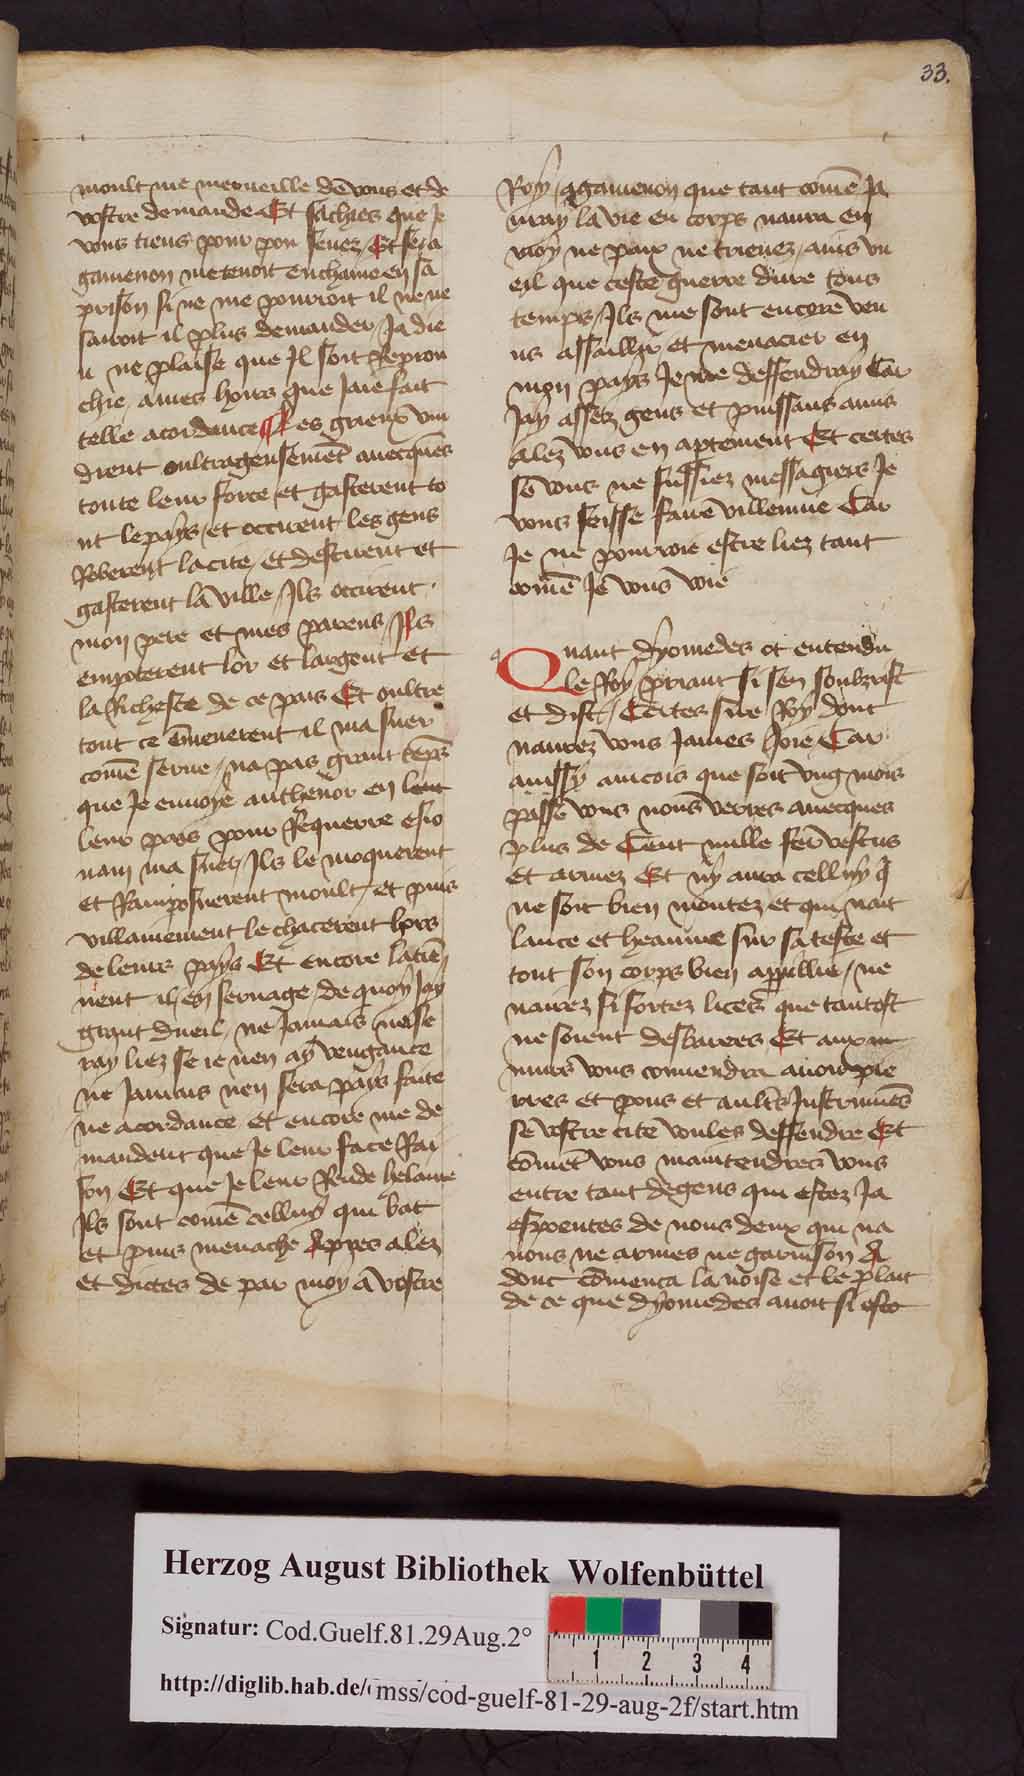 33.
moult me merueille de vous et de
vostre demande Et sachies que Je
vous tiens pour pou senez / Et se a
gamenon me tenoit enchaine en sa
prison si ne me pourroit il ne ne
sauroit il plus demander / Ja die
u ne plaise que Il soit Reprou
chie / a mes hours que Jaie fait
telle acordance les grieux vin
drent oultrageusemēt auecques
toute leur force / et gasterent to
ut le pays / et occirent les gens
Roberent la cite / et destruent et
gasterent la ville / Ils occirent
mon pere et mes parens / Ils
empoterent lor et largent et
la Richesce de ce pais Et oultre
tout ce ēmenerent il ma suer
comē serue / na pas grant tēps
que Je enuoye anthenor en leur
leur pays pour Requerre esio
nam ma suer / Ils le moquerent
et Ramposnerent moult / et puis
villainement le chacerent hors
de leurs pays Et encore la tiē
nent il / en seruage / de quoy Jay
grant dueil / ne Jamais ne se
ray liez se ie nen ay vengance
ne Jamais nen sera pays faite
ne acordance et encore me de
mandent que Je leur face Rai
son Et que Je leur Rende helaine
Ils sont comē celluy qui bat
et puis menache Appres alez
et dictes de par moy a vostre
Roy / agamenon que tant comē Ja
uray la vie en corps naura en
moy ne paix ne trieuez / ains vu
eil que ceste guerre dure tous
temps / Ils me sont encore ven
us assaillir et menacier en
mon pays Je me deffendray Car
Jay assez gens et puissans amis
Alez vous en aptement Et certes
se vous ne fussiez messagiers Je
vous feisse faire villennie Car
Je ne pourroie estre liez tant
comē Je vous voie
Quant dyomedes ot entendu
le Roy priant si sen soubzrist
et dist / Certes sire Roy dont
naurez vous James Joie Car
aussy aincois que soit vng mois
passe vous nous verres auecques
plus de Cent mille fer vestus
et armez Et ny aura celluy q̄
ne soit bien montez et qui nait
lance et heaume sur sa teste et
tout son corps bien appillie / ne
naurez si fortez lices que tantost
ne soient desbarees Et aux m
murs vous conuendra auoir pie
rres et pons et aultrs Instrumēs
se vostre cite voules deffendre Et
cōmēt vous maintendres vous
entre tant de gens qui estez Ja
espoentes de nous deux qui na
uons ne armes ne garnison A
dont cōmenca la noise et le plait
de ce que dyomedes auoit si efo
Herzog August Bibliothek Wolfenbüttel
Signatur: Cod.Guelf.81.29Aug.2°
1 2 3 4
http://diglib.hab.de/mss/cod-guelf-81-29-aug-2f/start.htm